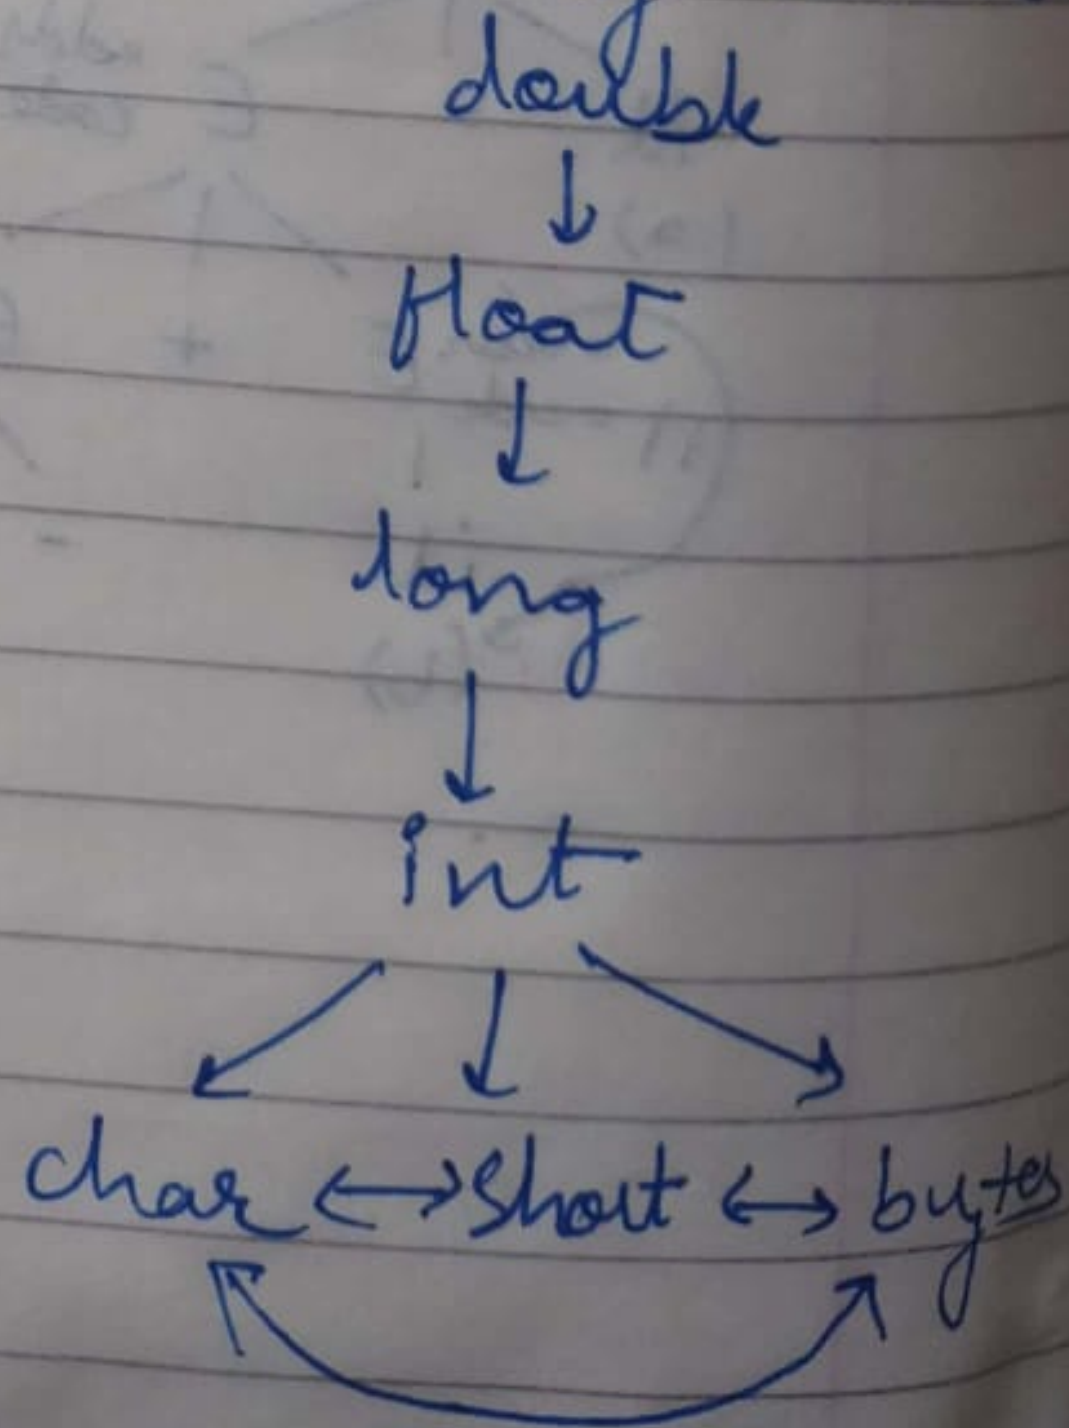 double
float
long
int
char short bytes